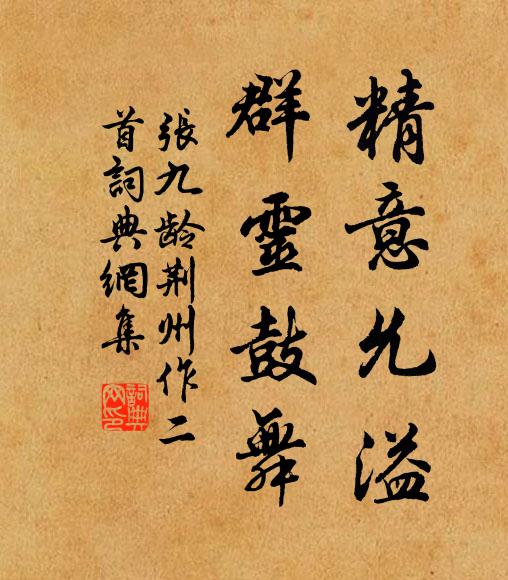 精意允溢
群靈鼓舞
張九齡荆州作二
首詞典網集
詞典
网印